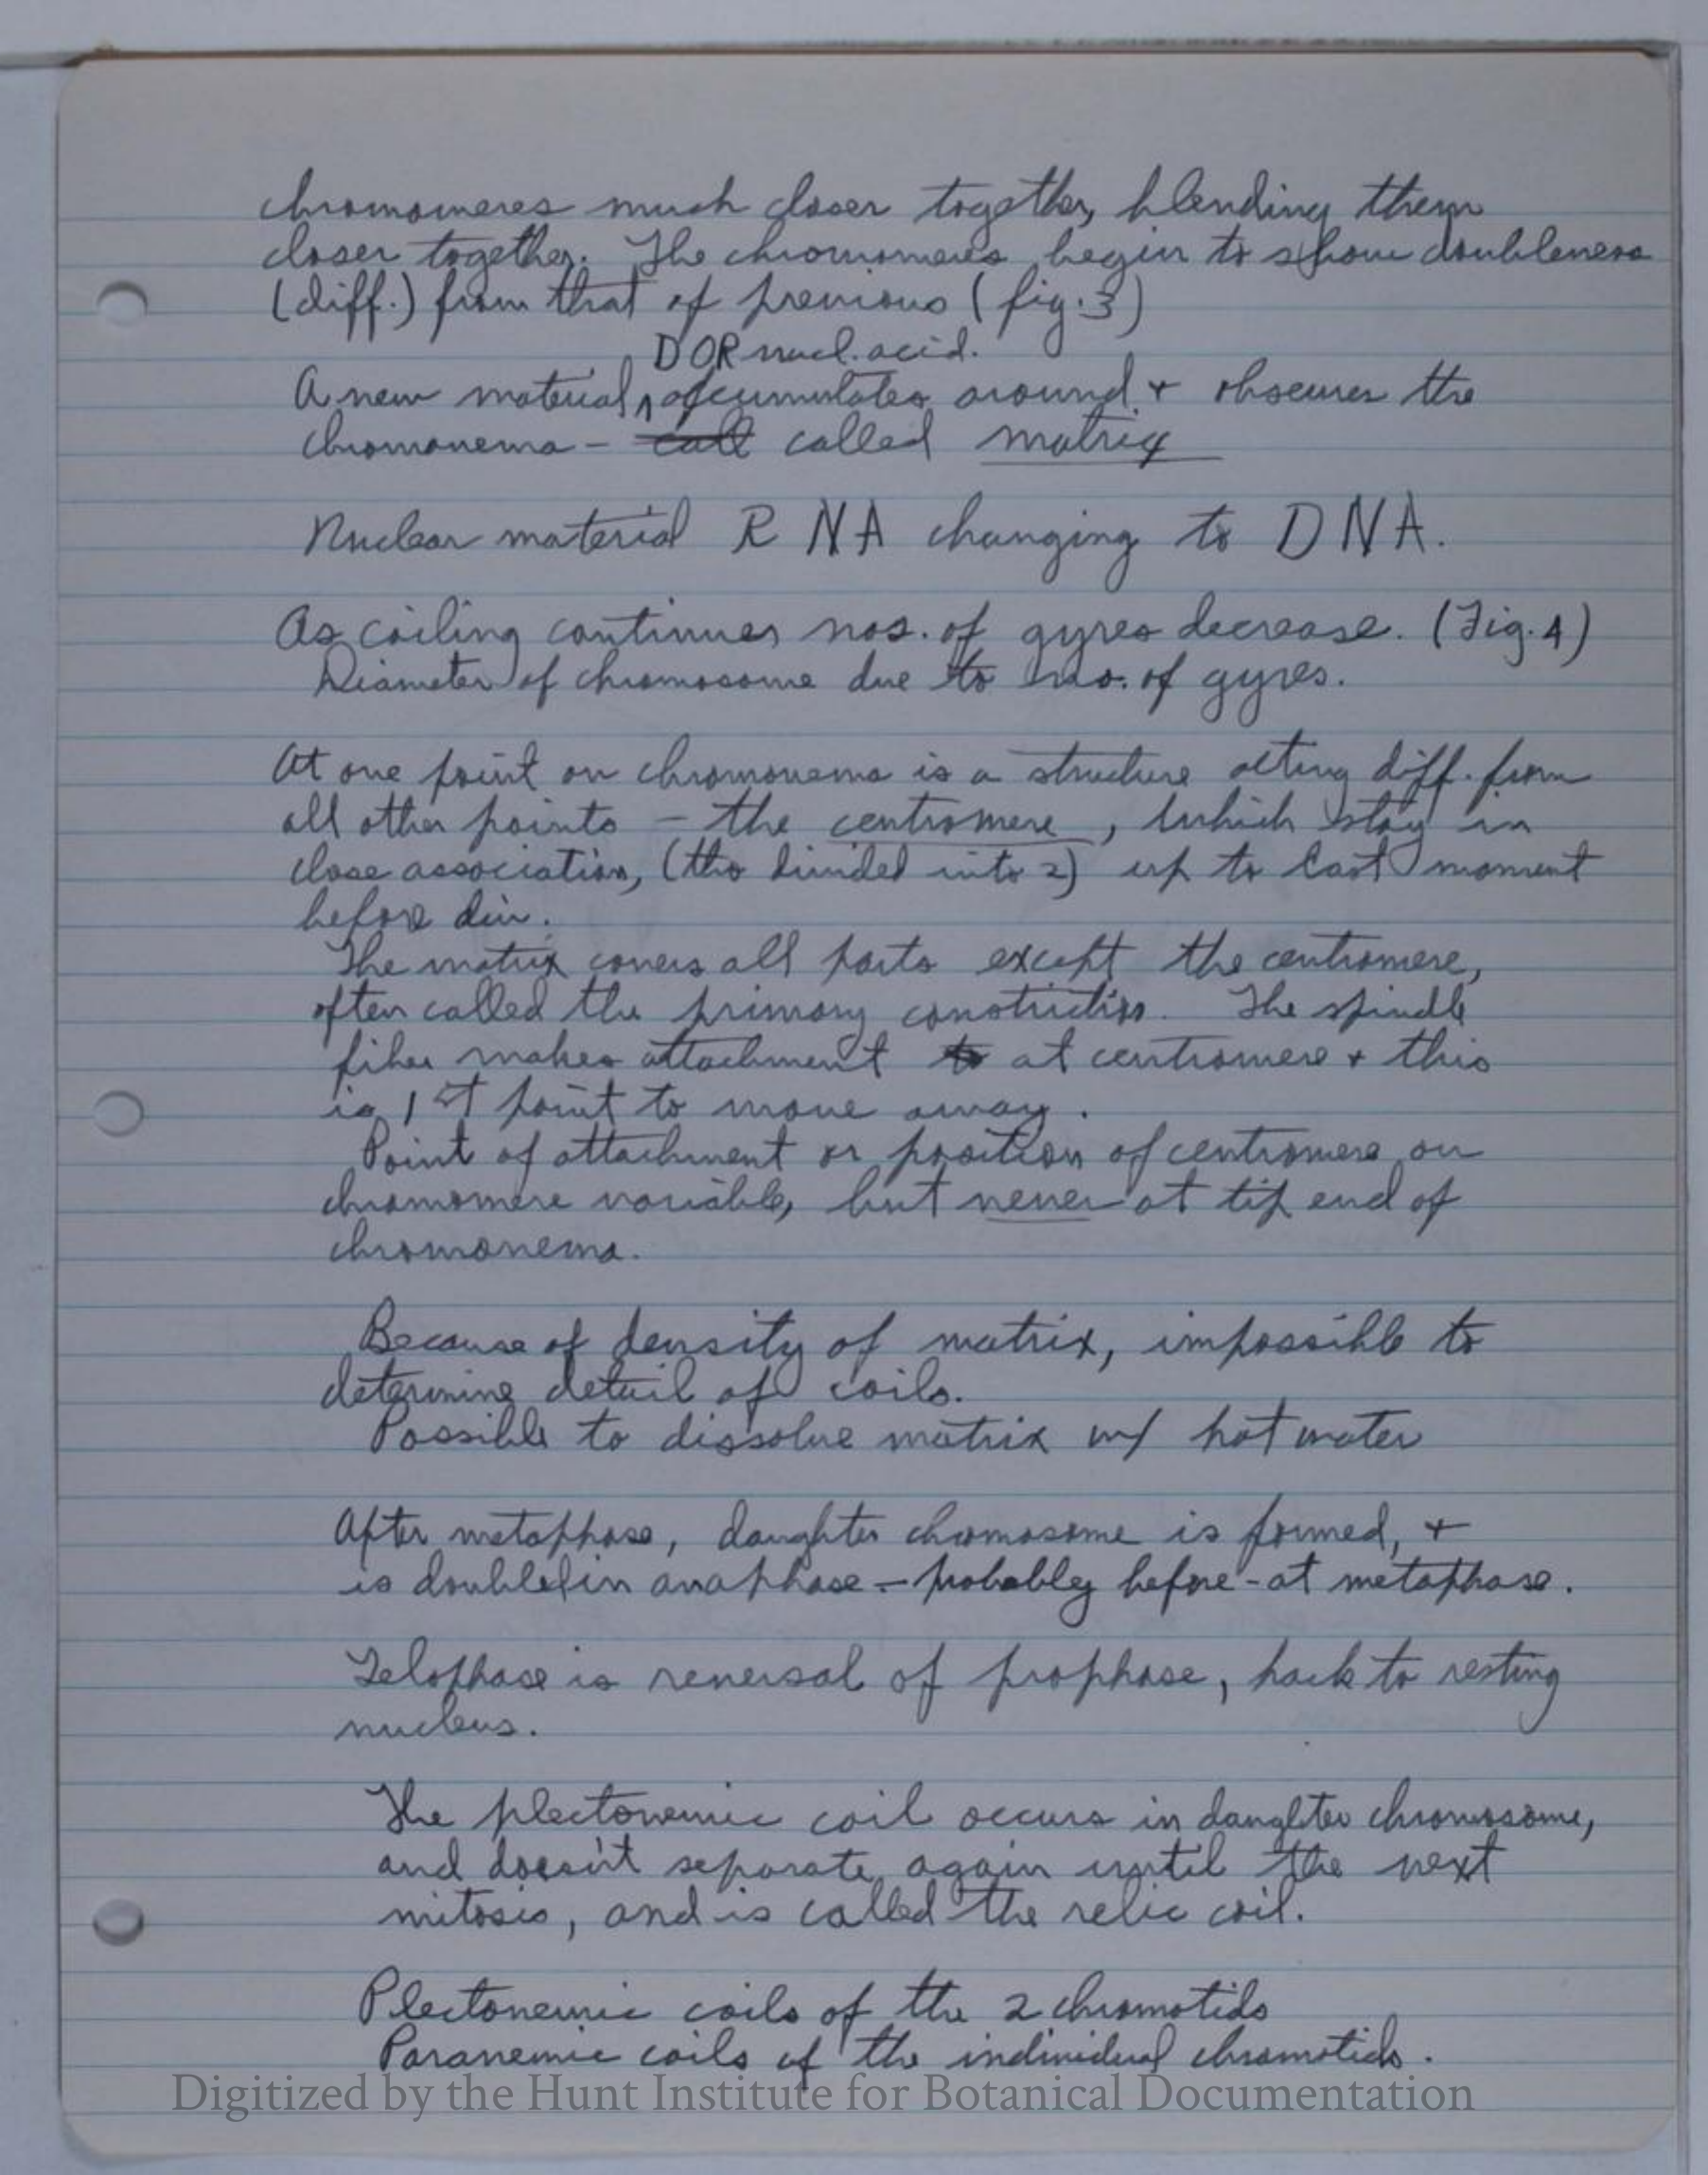 chromomeres much closer together, blending them
closer together. The chromomeres begin to show doubleness
(diff.) from that of previous (fig. 3)
D OR nucl. acid.
A new material, ^ accumulates around + obscures the
chromonema - call called matrix
Nuclear material RNA changing to DNA.
As coiling continues nos. of gyres decrease. (Fig. 4)
Diameter of chromosome due to no. of gyres.
At one point on chromonema is a structure acting diff. from
all other points - the centromere, which stay in
close association, (tho divided into 2) up to last moment
before div.
The matrix covers all parts except the centromere,
often called the primary constriction. The spindle
fiber makes attachment to at centromere + this
is 1st point to move away.
Point of attachment or position of centromere on
chromomere variable, but never at tip end of
chromonema.
Because of density of matrix, impossible to
determine detail of coils.
Possible to dissolve matrix w/ hot water
After metaphase, daughter chromosome is formed, +
is doubled in anaphase - probably before - at metaphase.
Telophase is reversal of prophase, back to resting
nucleus.
The plectonemic coil occurs in daughter chromosome,
and doesn't separate again until the next
mitosis, and is called the relic coil.
Plectonemic coils of the 2 chromatids
Paranemic coils of the individual chromatids.
Digitized by the Hunt Institute for Botanical Documentation